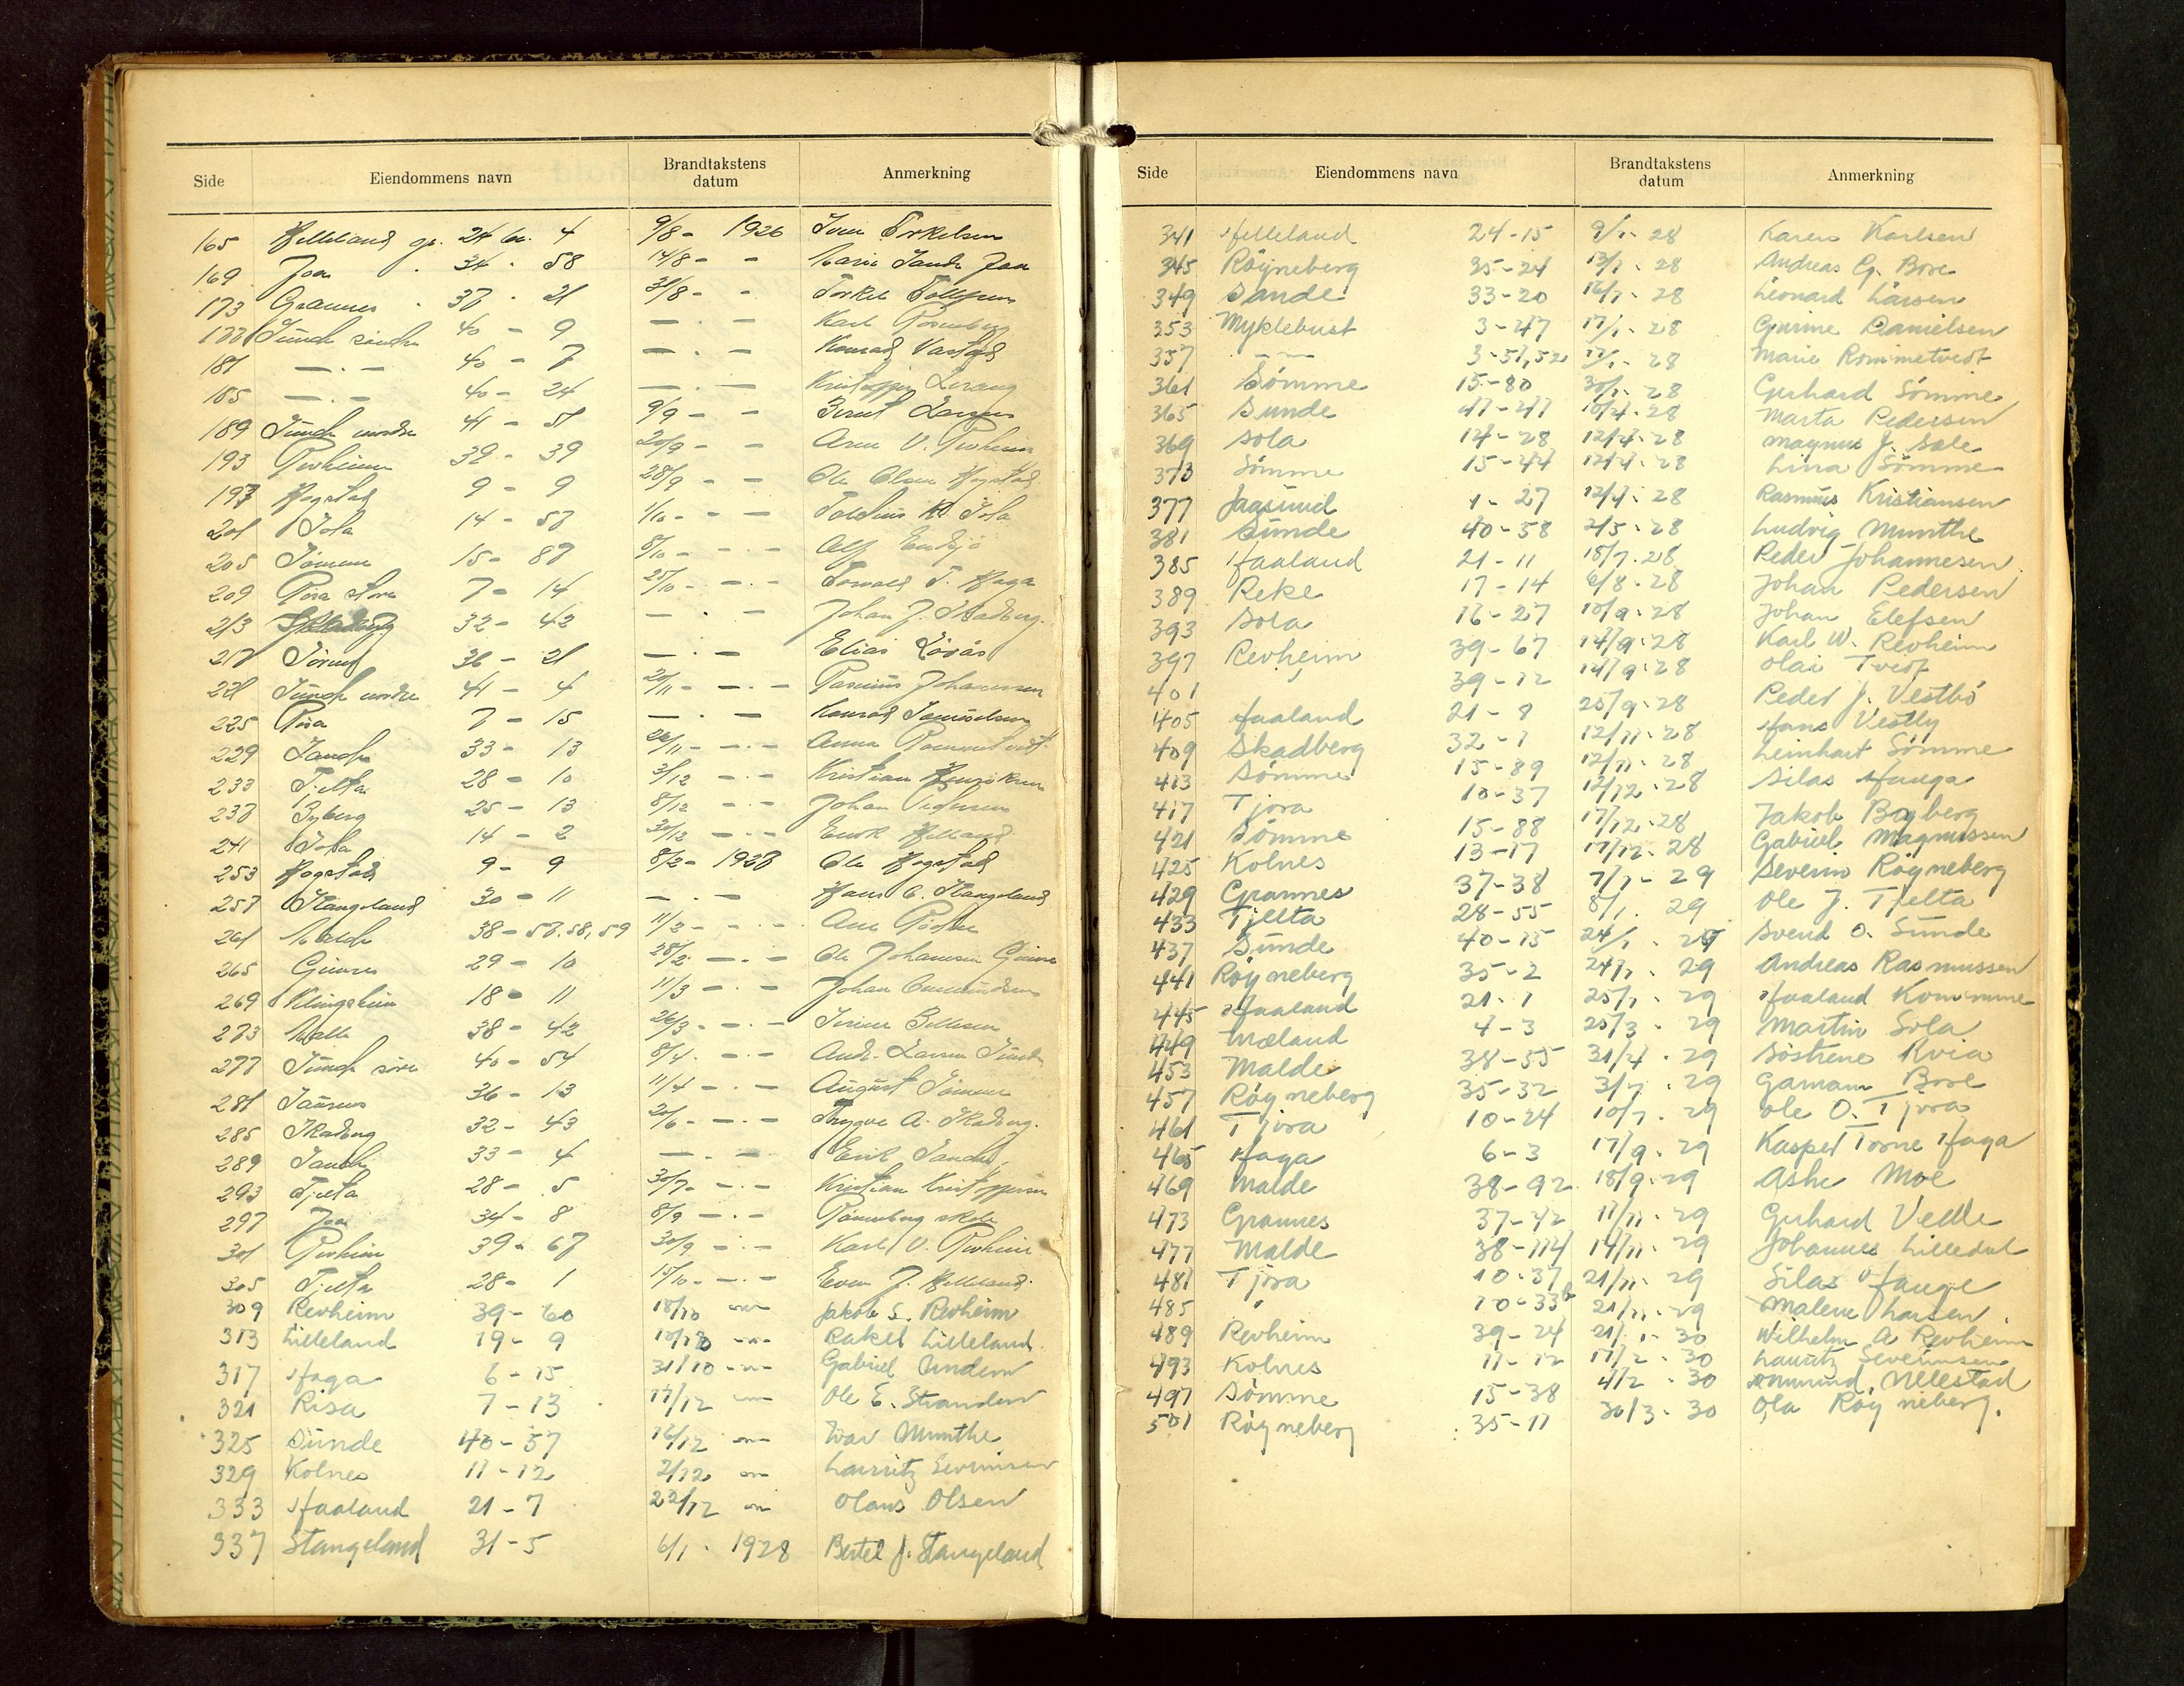 Side Eiendommens navn Brandtakstens datum Anmerkning
165 Helleland gr. 24 bn. 4 9/8 - 1926 Iver Torkelsen
169 Joa . 34 . 58 14/8 - - Marie Sande Joa
173 Grannes . 37 . 21 31/8 - - Torkel Tollefsen
177 Sunde söndre 40 - 9 — . — Karl
181 — . — 40 - 7 — . — Konrad
185 — . — 40 - 24 — . —
189 Sunde nordre 41 - 51 9/9 - - Bernt Larsen
193 Revheim 39 - 39 20/9 - - Arne V. Revheim
197 Hogstad 9 - 9 28/9 - - Ole Olsen Hogstad
201 Sola 14 - 57 1/10 - - - Sola
205 Sömme 15 - 87 8/10 - - . - Alf
209 Risa store 7 - 14 25/10 - - . - Torvald T. Haga
213 Skadberg 32 - 42 — . — Johan J. Skadberg.
217 Sörnes 36 - 21 — . — Elias
221 Sunde nordre 41 - 4 20/11 - - . - Rasmus Johannesen
225 Risa 7 - 15 — . — Konrad Samuelsen
229 Sande 33 - 13 26/11 - - . - Anna Rommetvedt
233 Tjelta 28 - 10 3/12 - . - Kristian Henriksen
237 Byberg 25 - 13 8/12 - . - Johan Pedersen
241 Sola 14 - 2 30/12 - - . - Enok Helland
253 Hogstad 9 - 9 8/2 - 1927 Ole Hogstad
257 Stangeland 30 - 11 — . — Hans C. Stangeland
261 Malde 38 - 57, 58, 59 11/2 - - . -
265 Gimre 29 - 10 28/2 - - . - Ole Johannesen Gimre
269 Klingsheim 18 - 11 11/3 - . - Johan
273 Malde 38 - 42 26/3 - - . -
277 Sunde söre 40 - 54 8/4 . - . - Andr. Larsen Sunde
281 Sörnes 36 - 13 11/4 - . - August Sömme
285 Skadberg 32 - 43 20/6 - - . - Trygve A. Skadberg.
289 Sande 33 - 4 — . — Erik Sande
293 Tjelta 28 - 5 30/7 - - . - Kristian Kristoffersen
297 Joa 34 - 8 8/9 - . - Röineberg skole
301 Revheim 39 - 67 30/9 - . - Karl V. Revheim
305 Tjelta 28 - 1 15/10 - - . - Even J. Helleland.
309 Revheim 39 - 60 18/10 -"- Jakob S. Revheim
313 Lilleland 19 - 9 -"- Rakel Lilleland.
317 Haga 6 - 15 31/10 -"- Gabriel
321 Risa 7 - 13 17/12 -"- Ole E. Stranden
325 Sunde 40 - 57 16/12 -"- Ivar Munthe
329 Kolnes 11 - 12 2/12 -"- Lauritz Severinsen
333 Haaland 21 - 7 22/12 -"- Olaus Olsen
337 Stangeland 31 - 5 6/1 . 1928 Bertel J. Stangeland
Side Eiendommens navn Brandtakstens datum Anmerkning
341 Helleland 24 - 15 9/1 - 28 Karen Karlsen
345 Röyneberg 35 - 24 13/1 - 28 Andreas G. Bore
349 Sande 33 - 20 16/1 - 28 Leonard Larsen
353 Myklebust 3 - 47 17/1 - 28 Gurine Danielsen
357 - " - 3 - 51,52 17/1 - 28 Marie Rommetvedt
361 Sömme 15 - 80 30/1 - 28 Gerhard Sömme
365 Sunde 41 - 41 10/4 - 28 Marta Pedersen
369 Sola 14 - 28 12/4 - 28 Magnus J. Sole
373 Sömme 15 - 44 12/4 - 28 Lina Sömme
377 Jaasund 1 - 27 12/4 - 28 Rasmus Kristiansen
381 Sunde 40 - 58 2/5 - 28 Ludvig Munthe
385 Haaland 21 - 11 18/7 . 28 Peder Johannesen.
389 Reke 17 - 14 6/8 - 28 Johan Pedersen
393 Sola 16 - 27 10/9 - 28 Johan Elefsen
397 Revheim 39 - 67 14/9 - 28 Karl W. Revheim
401 " 39 - 12 14/9 - 28 Olai Tvedt
405 Haaland 21 - 8 25/9 - 28 Peder J. Vestbö
409 Skadberg 32 - 1 12/11 - 28 Hans Vestly
413 Sömme 15 - 89 12/11 - 28 Leinhart Sömme
417 Tjora 10 - 37 12/12 - 28 Silas Hauga
421 Sömme 15 - 88 17/12 - 28 Jakob Bogberg
425 Kolnes 13 - 17 17/12 - 28 Gabriel Magnussen
429 Grannes 37 - 38 7/1 - 29 Severin Röyneberg
433 Tjelta 28 - 55 8/1 . 29 Ole J. Tjelta
437 Sunde 40 - 15 24/1 . 29 Svend O. Sunde
441 Röyneberg 35 - 2 24/1 . 29 Andreas Rasmussen
445 Haaland 21 - 1 25/1 - 29 Haaland Kommune
449 Mæland 4 - 3 25/3 - 29 Martin Sola
453 Malde 38 - 55 31/4 - 29 Söstrene Kvia
457 Röyneberg 35 - 32 3/7 . 29 Gamam Bore
461 Tjora 10 - 24 10/7 . 29 Ole O. Tjora
465 Haga 6 - 3 17/9 . 29 Kasper Torne Haga
469 Malde 38 - 92 18/9 - 29 Moe
473 Grannes 37 - 42 11/11 - 29 Gerhard Vedle
477 Malde 38 - 114 14/11 - 29 Johannes Lilledal
481 Tjora 10 - 37 21/11 - 29 Silas Hauge
485 " 10 - 33b 21/11 - 29 Malene Larsen
489 Revheim 39 - 24 21/1 - 30 Wilhelm A. Revheim
493 Kolnes 11 - 12 17/2 - 30 Lauritz Severinsen
497 Sömme 15 - 38 4/2 - 30 Ommund Nelestad
501 Röyneberg 35 - 11 30/3 - 30 Ola Röyneberg.